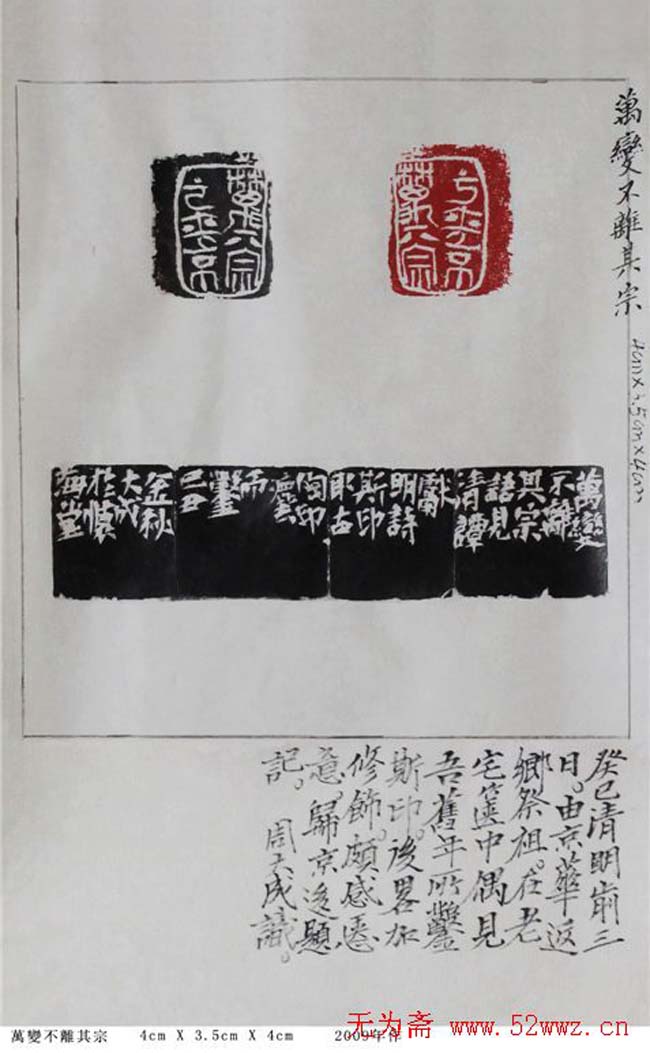 萬變不離其宗
4cm×3.5cm×4cm
萬變
不離
其宗
語見
清譚
獻
明詩
斯印
耶古
匋印
慶雲
而
鑿
己丑
金秋
大成
於慎
海堂
癸巳清明前三
日。由京華返
鄉祭祖。在老
宅篋中偶見
吾舊年所鑿
斯印。後畧加
修飾。頗感愜
意。歸京後題
記。周大成識。
萬變不離其宗 4cm X 3.5cm X 4cm 2009年作
无为斋 www.52wwz.cn